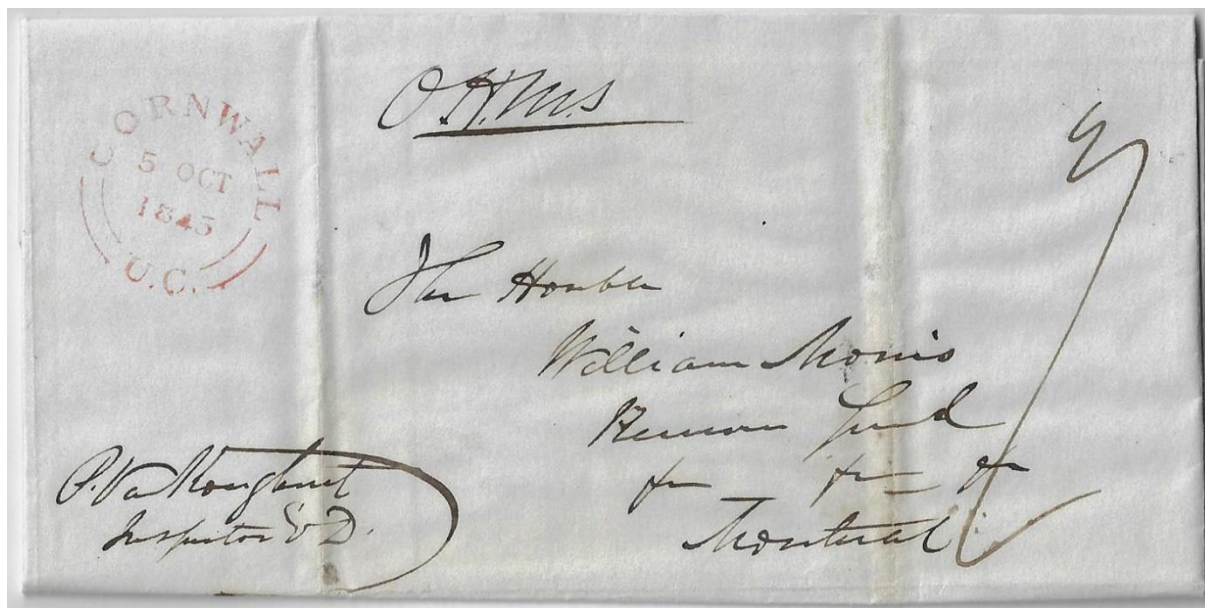 O.H.M.S
CORNWALL
5 OCT
1845
U.C.
The Honble
William Morris
Receiver Genl
&c &c &c
Montreal
P. VanKoughnet
Inspector E D.